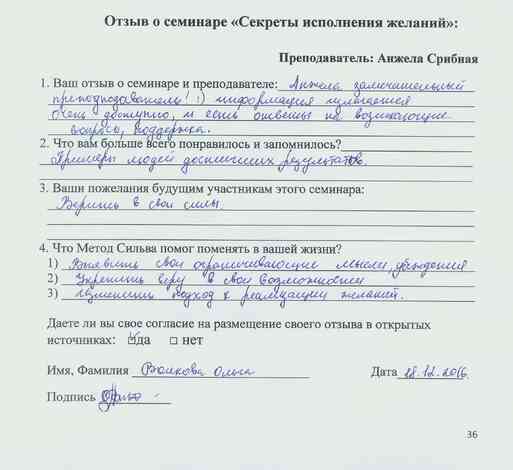 Отзыв о семинаре «Секреты исполнения желаний»:
Преподаватель: Анжела Срибная
1. Ваш отзыв о семинаре и преподавателе: Анжела замечательный
преподподаватель! :) информация излагается
очень доступно, и есть ответы на возникающие
вопросы, поддержка.
2. Что вам больше всего понравилось и запомнилось?
Примеры людей достигших результатов.
3. Ваши пожелания будущим участникам этого семинара:
Верить в свои силы.
4. Что Метод Сильва помог поменять в вашей жизни?
1) Выявить свои ограничивающие мысли, убеждения
2) Укрепить веру в свои возможности
3) Изменить подход к реализации желаний.
Даете ли вы свое согласие на размещение своего отзыва в открытых
источниках: да нет
Имя, Фамилия Волкова Ольга Дата 18.12.2016
Подпись
36